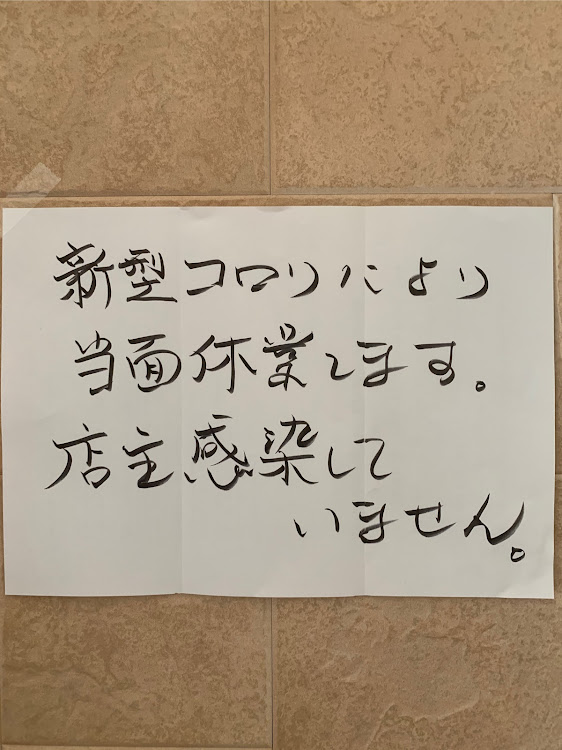 新型コロリにより
当面休業します。
店主感染して
いません。